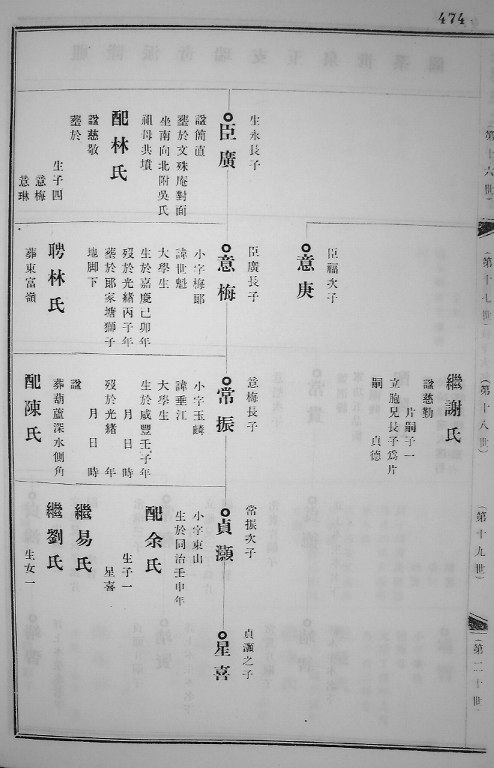 474
第十六世
第十七世
第十八世
第十九世
第二十世
繼謝氏
諡慈勤
片嗣子一
立胞兄長子爲片
嗣
貞德
臣福次子
意庚
生永長子
臣廣
諡簡直
塟於文殊庵對面
坐南向北附吳氏
祖母共墳
配林氏
諡慈敬
塟於
生子四
意梅
意琳
臣廣長子
意梅
小字梅郎
諱世魁
大學生
生於嘉慶己卯年
歿於光緒丙子年
塟於郎家塘獅子
地脚下
聘林氏
葬東富嶺
意梅長子
常振
小字玉麟
諱垂江
大學生
生於咸豐壬子年
月日時
歿於光緒年
月日時
諡
葬葫蘆深水側角
配陳氏
常振次子
貞灝
小字東山
生於同治壬申年
配余氏
生子一
星喜
繼易氏
繼劉氏
生女一
貞灝之子
星喜